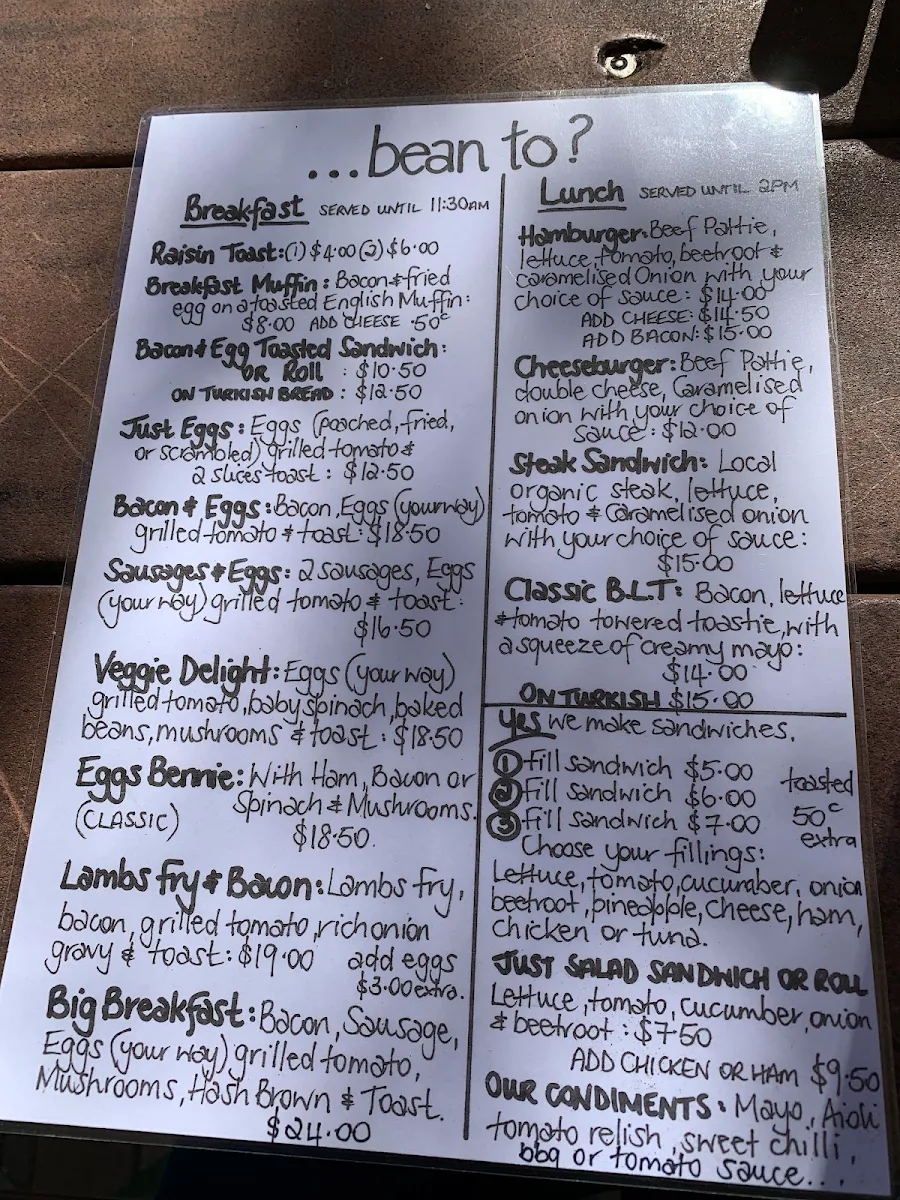 ...bean to?
Breakfast SERVED UNTIL 11:30AM
Raisin Toast: (1) $4.00 (2) $6.00
Breakfast Muffin: Bacon & fried
egg on a toasted English Muffin:
$8.00 ADD CHEESE .50c
Bacon & Egg Toasted Sandwich:
OR Roll : $10.50
ON TURKISH BREAD: $12.50
Just Eggs: Eggs (poached, fried,
or scrambled) grilled tomato &
2 slices toast: $12.50
Bacon & Eggs: Bacon, Eggs (your way)
grilled tomato & toast: $18.50
Sausages & Eggs: 2 sausages, Eggs
(your way) grilled tomato & toast:
$16.50
Veggie Delight: Eggs (your way)
grilled tomato, baby spinach, baked
beans, mushrooms & toast: $18.50
Eggs Bennie: With Ham, Bacon or
(CLASSIC) Spinach & Mushrooms.
$18.50.
Lambs Fry & Bacon: Lambs fry,
bacon, grilled tomato, rich onion
gravy & toast: $19.00 add eggs
$3.00 extra.
Big Breakfast: Bacon, Sausage,
Eggs (your way) grilled tomato,
Mushrooms, Hash Brown & Toast.
$24.00
Lunch SERVED UNTIL 2PM
Hamburger: Beef Pattie,
lettuce, tomato, beetroot &
Caramelised Onion with your
choice of sauce: $14.00
ADD CHEESE: $14.50
ADD BACON: $15.00
Cheeseburger: Beef Pattie,
double cheese, Caramelised
onion with your choice of
sauce: $12.00
Steak Sandwich: Local
organic steak, lettuce,
tomato & Caramelised onion
with your choice of sauce:
$15.00
Classic B.L.T: Bacon, lettuce
& tomato towered toastie, with
a squeeze of creamy mayo:
$14.00
ON TURKISH $15.00
Yes we make sandwiches.
1 Fill sandwich $5.00 toasted
2 Fill sandwich $6.00 50c
3 Fill sandwich $7.00 extra
Choose your fillings:
Lettuce, tomato, cucumber, onion
beetroot, pineapple, cheese, ham,
chicken or tuna.
JUST SALAD SANDWICH OR ROLL
Lettuce, tomato, cucumber, onion
& beetroot: $7.50
ADD CHICKEN OR HAM $9.50
OUR CONDIMENTS: Mayo, Aioli
tomato relish, sweet chilli,
bbq or tomato sauce...